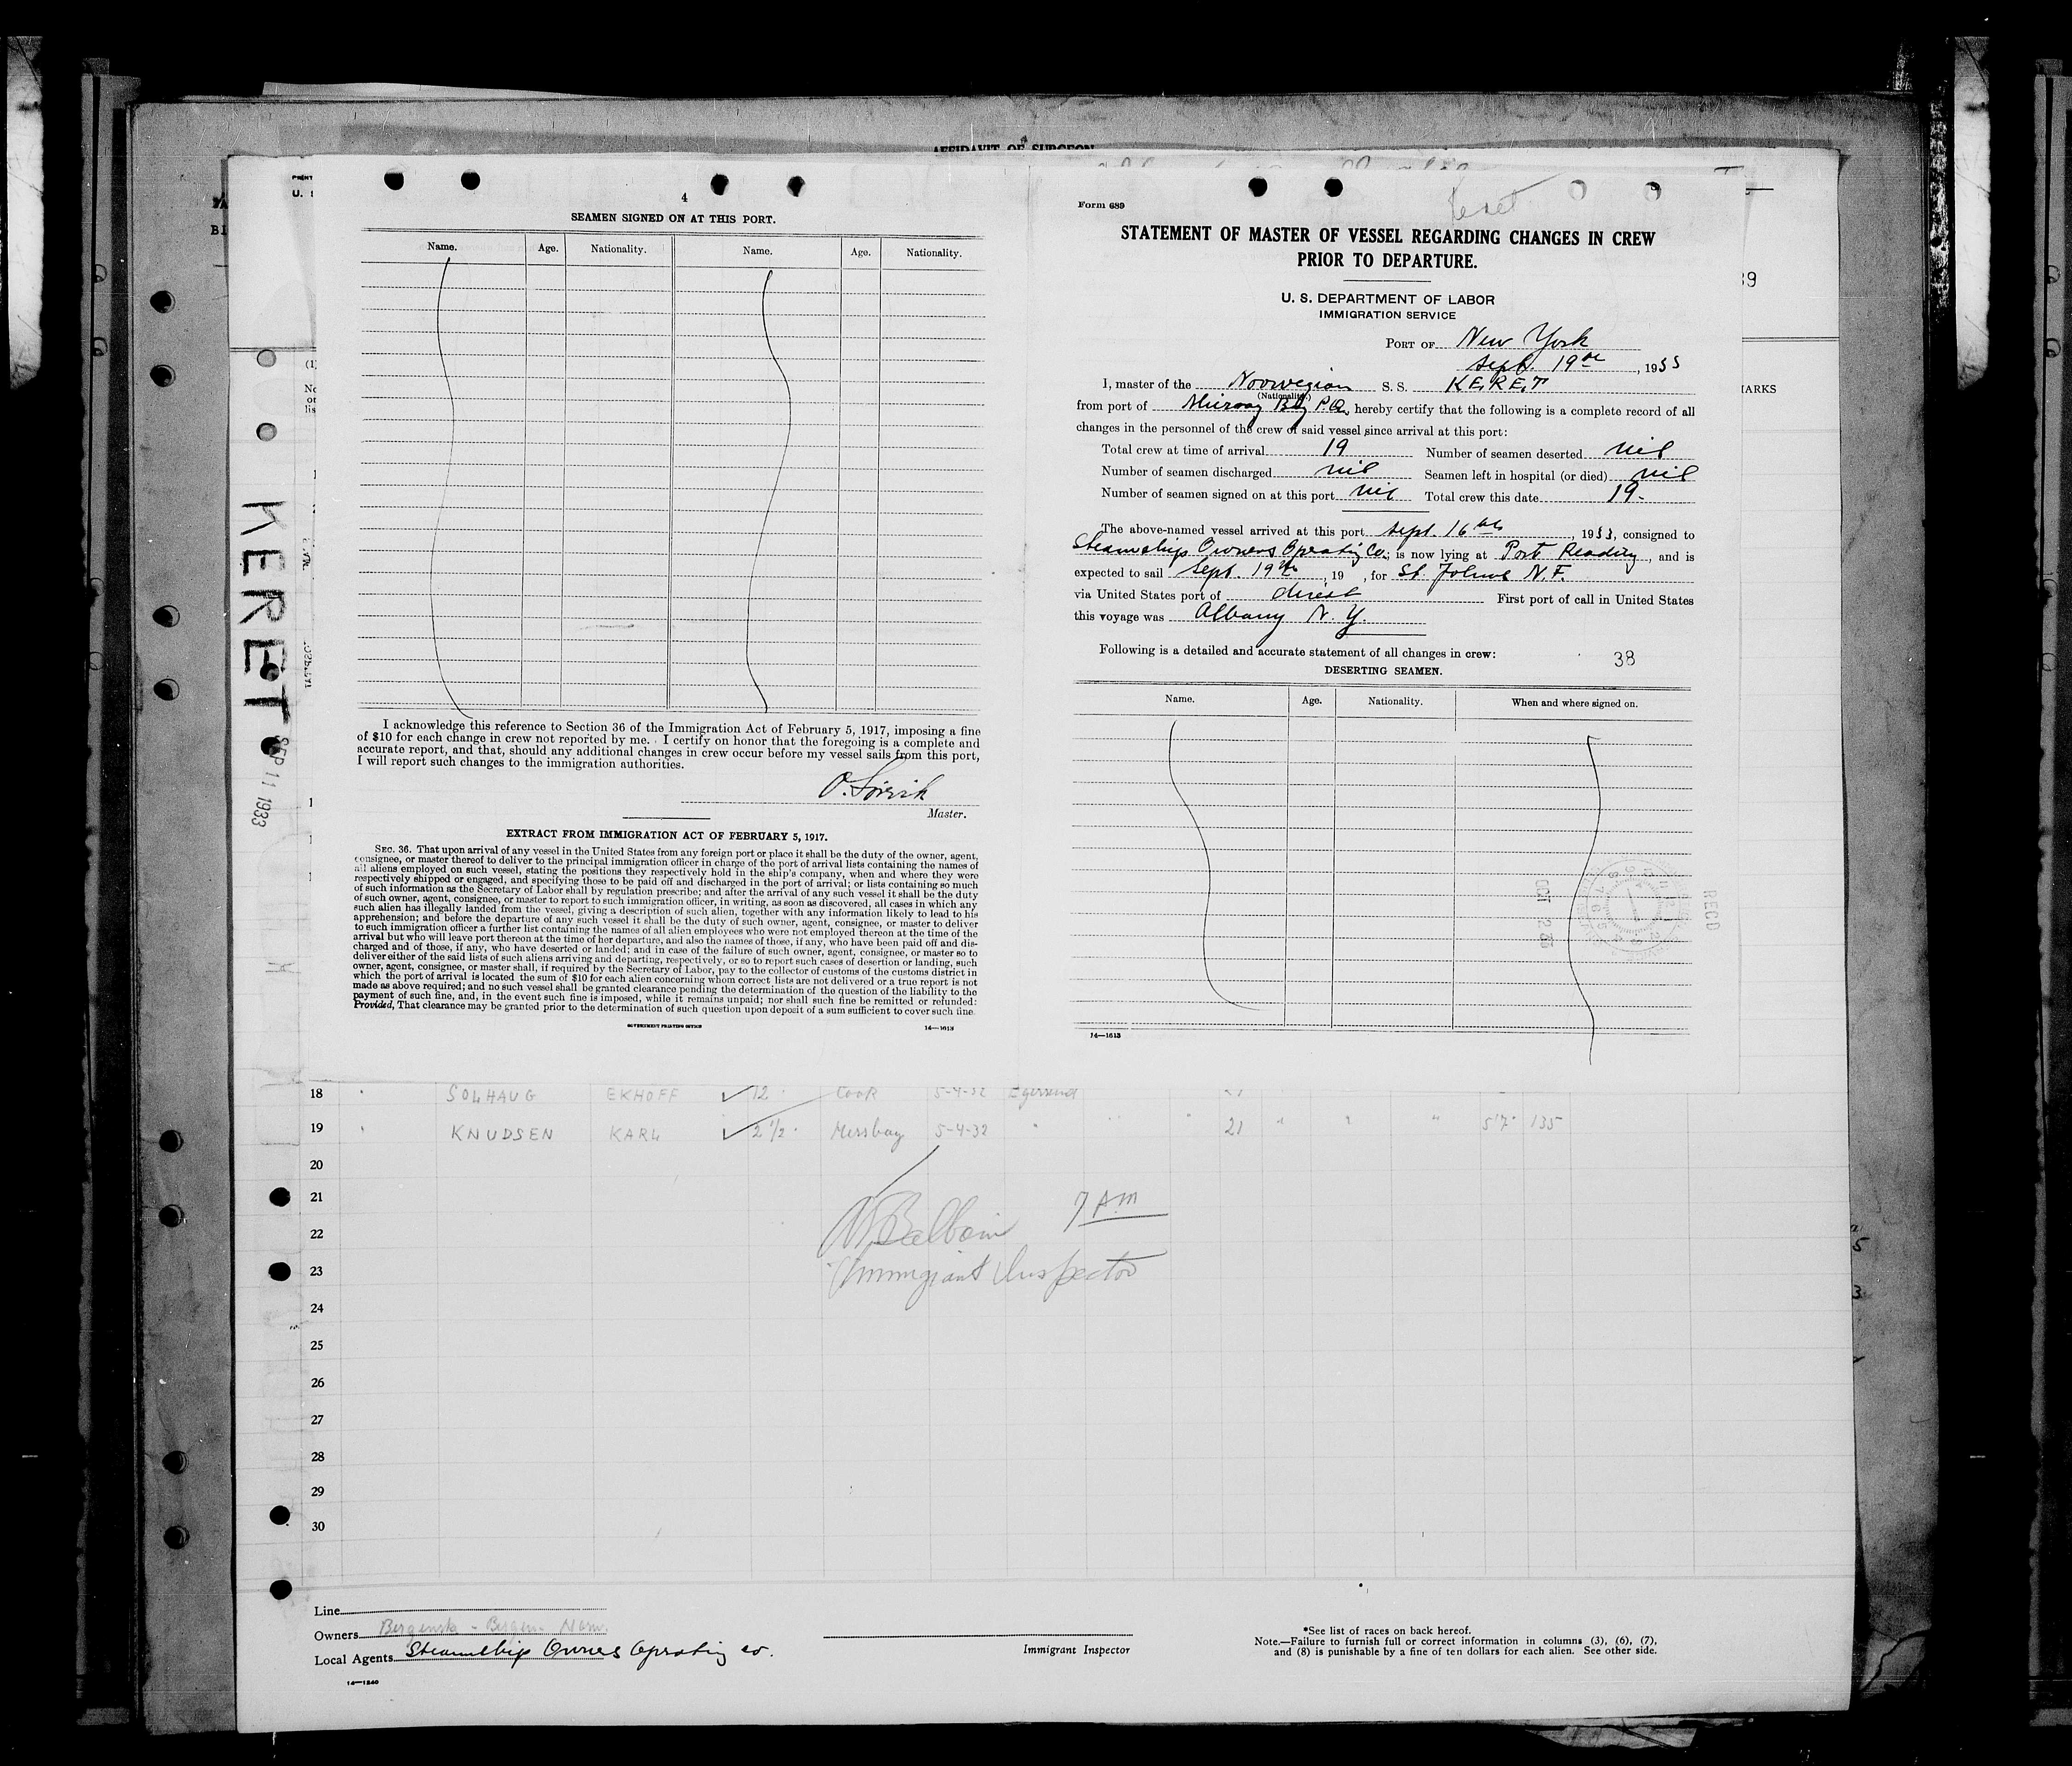 AFFIDAVIT OF SURGEON
PRINT
U. S
4
SEAMEN SIGNED ON AT THIS PORT.
Name. Age. Nationality. Name. Age. Nationality.
I acknowledge this reference to Section 36 of the Immigration Act of February 5, 1917, imposing a fine
of $10 for each change in crew not reported by me. I certify on honor that the foregoing is a complete and
accurate report, and that, should any additional changes in crew occur before my vessel sails from this port,
I will report such changes to the immigration authorities.
Master.
EXTRACT FROM IMMIGRATION ACT OF FEBRUARY 5, 1917.
SEC. 36. That upon arrival of any vessel in the United States from any foreign port or place it shall be the duty of the owner, agent,
consignee, or master thereof to deliver to the principal immigration officer in charge of the port of arrival lists containing the names of
all aliens employed on such vessel, stating the positions they respectively hold in the ship's company, when and where they were
respectively shipped or engaged, and specifying those to be paid off and discharged in the port of arrival; or lists containing so much
of such information as the Secretary of Labor shall by regulation prescribe; and after the arrival of any such vessel it shall be the duty
of such owner, agent, consignee, or master to report to such immigration officer, in writing, as soon as discovered, all cases in which any
such alien has illegally landed from the vessel, giving a description of such alien, together with any information likely to lead to his
apprehension; and before the departure of any such vessel it shall be the duty of such owner, agent, consignee, or master to deliver
to such immigration officer a further list containing the names of all alien employees who were not employed thereon at the time of the
arrival but who will leave port thereon at the time of her departure, and also the names of those, if any, who have been paid off and dis-
charged and of those, if any, who have deserted or landed; and in case of the failure of such owner, agent, consignee, or master so to
deliver either of the said lists of such aliens arriving and departing, respectively, or so to report such cases of desertion or landing, such
owner, agent, consignee, or master shall, if required by the Secretary of Labor, pay to the collector of customs of the customs district in
which the port of arrival is located the sum of $10 for each alien concerning whom correct lists are not delivered or a true report is not
made as above required; and no such vessel shall be granted clearance pending the determination of the question of the liability to the
payment of such fine, and, in the event such fine is imposed, while it remains unpaid; nor shall such fine be remitted or refunded:
Provided, That clearance may be granted prior to the determination of such question upon deposit of a sum sufficient to cover such fine.
GOVERNMENT PRINTING OFFICE 14—1613
KERET
SEP 11 1933
Form 689
Keret
STATEMENT OF MASTER OF VESSEL REGARDING CHANGES IN CREW
PRIOR TO DEPARTURE.
U. S. DEPARTMENT OF LABOR
IMMIGRATION SERVICE
PORT OF New York
Sept. 19th, 1933
I, master of the Norwegian S. S. KERET
(Nationality)
from port of Murray Bay P.Q. hereby certify that the following is a complete record of all
changes in the personnel of the crew of said vessel since arrival at this port:
Total crew at time of arrival 19 Number of seamen deserted nil
Number of seamen discharged nil Seamen left in hospital (or died) nil
Number of seamen signed on at this port nil Total crew this date 19.
The above-named vessel arrived at this port Sept. 16th, 1933, consigned to
Steamships Owners Operating Co, is now lying at Port Reading, and is
expected to sail Sept. 19th, 19 , for St. Johns N.F.
via United States port of direct First port of call in United States
this voyage was Albany N.Y.
Following is a detailed and accurate statement of all changes in crew: 38
DESERTING SEAMEN.
Name. Age. Nationality. When and where signed on.
OCT 2 33
RECD
14—1613
39
MARKS
18 SOLHAUG EKHOFF 12 Cook 5-4-32 Egersund
19 KNUDSEN KARL 2 1/2 Messboy 5-4-32 " 21 " " " 5'7" 135
20
21 7 AM
22
23 Immigrant Inspector
24
25
26
27
28
29
30
Line
Owners Bergensk - Bergen
Local Agents Steamship Owners Operating co.
14—1240
Immigrant Inspector
*See list of races on back hereof.
Note.—Failure to furnish full or correct information in columns (3), (6), (7),
and (8) is punishable by a fine of ten dollars for each alien. See other side.